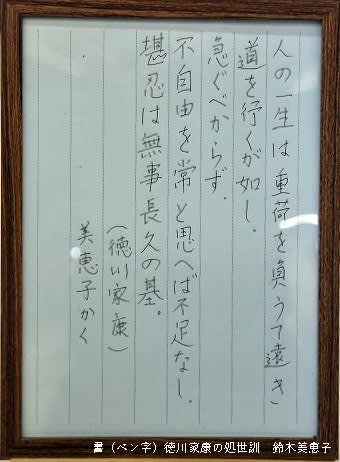 人の一生は重荷を負うて遠き
道を行くが如し.
急ぐべからず.
不自由を常と思へば不足なし.
堪忍は無事長久の基。
(徳川家康)
美恵子かく
書(ペン字)徳川家康の処世訓 鈴木美恵子